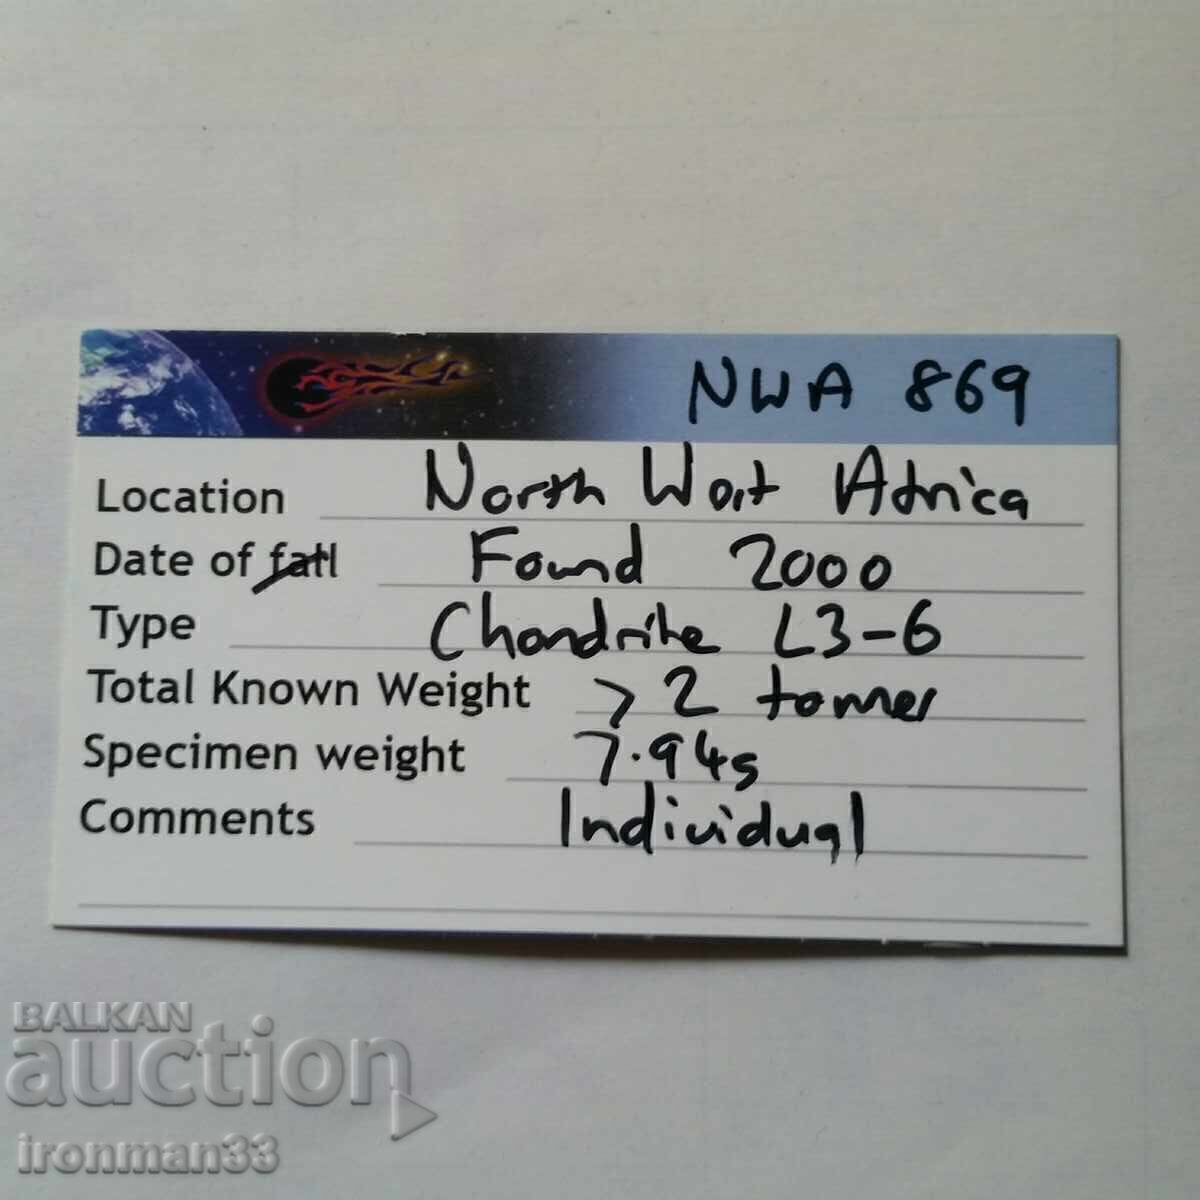 NWA 869
Location North West Africa
Date of fall Found 2000
Type Chondrite L3-6
Total Known Weight >2 tonnes
Specimen weight 7.94g
Comments Individual
BALKAN
auction
ironman33